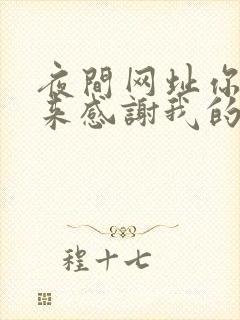 夜間网址你
来感謝我的
程十七